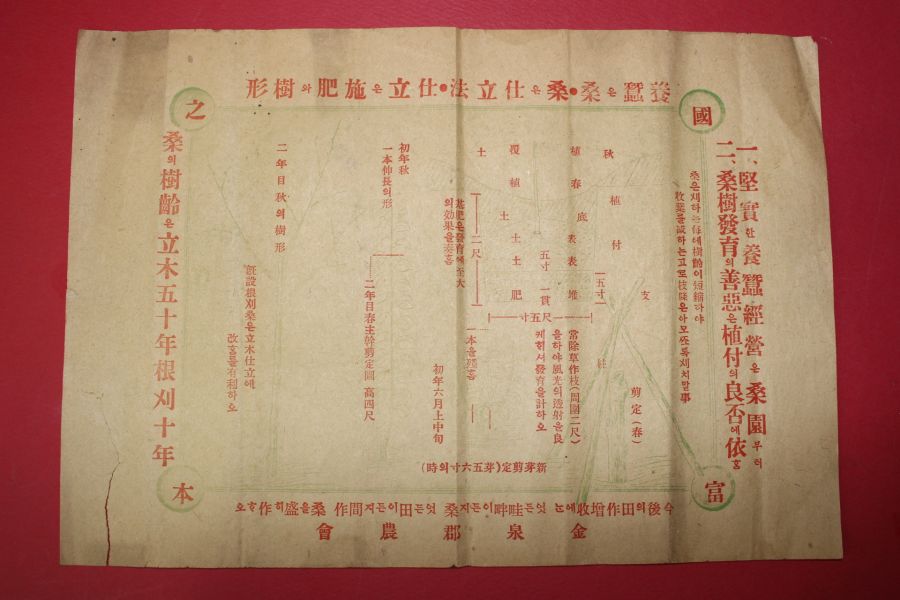 養蠶은桑•桑은仕立法•仕立은施肥와樹形
國
富
之
本
一、堅實한養蠶經營은桑園부터
二、桑樹發育의善惡은植付의良否에依홈
支
柱
剪定(春)
秋植付
一五寸
植春底表表堆
五寸一貫
覆植土土肥
土
一尺五寸
二尺
常除草作枝(周圍二尺)
을하야風光의透射을良
케하셔發育을計하오
基肥은發育에至大
의效果을奏홈
一本을殘홈
初年六月上中旬
新芽剪定(芽五六寸의時)
初年秋
一本伸長의形
二年目春主幹剪定圖 高四尺
二年目秋의樹形
旣設根刈桑은立木仕立에
改홈를有利하오
桑의樹齡은立木五十年根刈十年
今後의田作增收에는엇든畦畔이든지桑엇든田이든지間作桑을盛히作하오
金泉郡農會